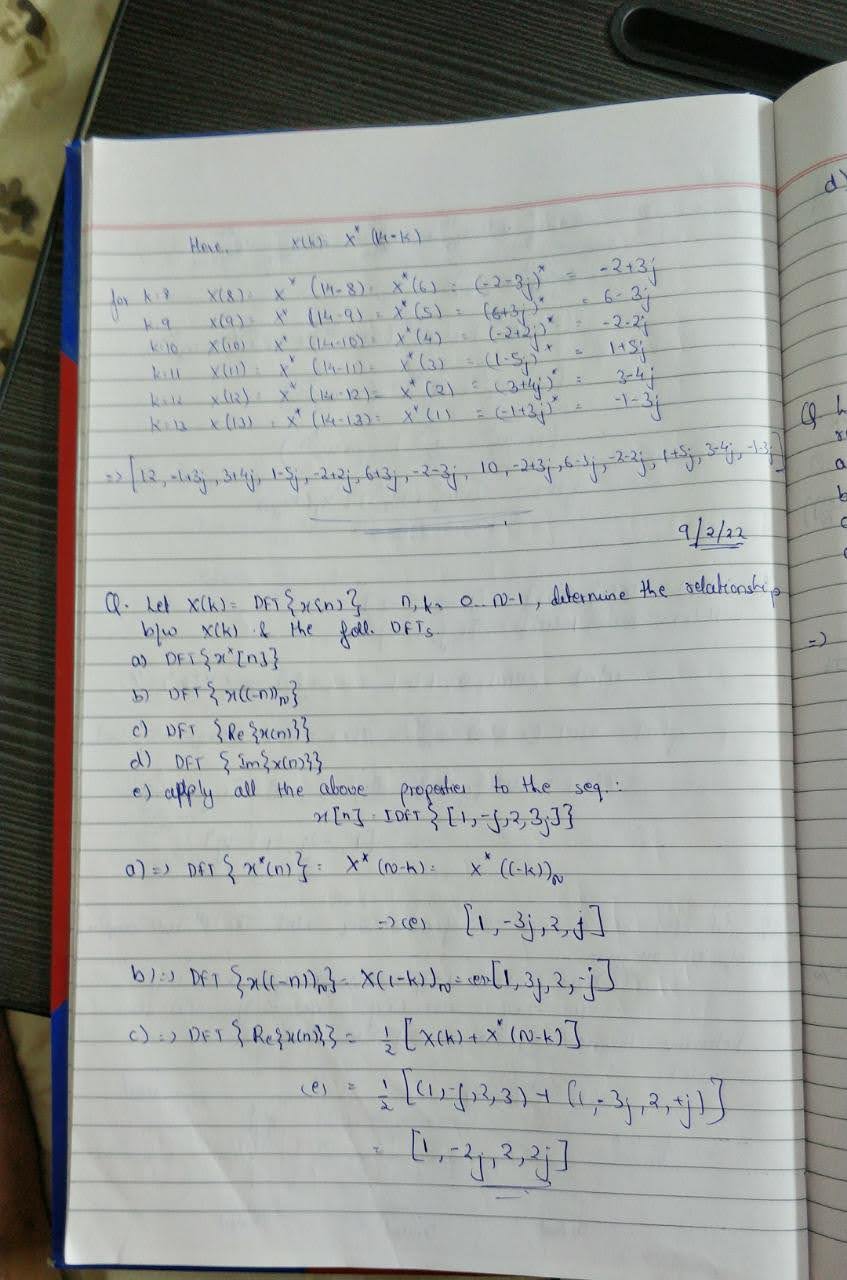 Here, X(k) = X*(14-k)
for k=8 X(8) = X*(14-8) = X*(6) = (-2-3j)* = -2+3j
k=9 X(9) = X*(14-9) = X*(5) = (6+3j)* = 6-3j
k=10 X(10) = X*(14-10) = X*(4) = (-2+2j)* = -2-2j
k=11 X(11) = X*(14-11) = X*(3) = (1-5j)* = 1+5j
k=12 X(12) = X*(14-12) = X*(2) = (3+4j)* = 3-4j
k=13 X(13) = X*(14-13) = X*(1) = (-1+3j)* = -1-3j
=> [12, -1+3j, 3+4j, 1-5j, -2+2j, 6+3j, -2-3j, 10, -2+3j, 6-3j, -2-2j, 1+5j, 3-4j, -1-3j]
9/2/22
Q. Let X(k) = DFT{x(n)} n,k = 0...N-1, determine the relationship
b/w X(k) & the foll. DFTs
a) DFT{x*[n]}
b) DFT{x((-n))N}
c) DFT {Re{x(n)}}
d) DFT {Im{x(n)}}
e) apply all the above properties to the seq.:
x[n] = IDFT{[1,-j,2,3j]}
a) => DFT{x*(n)} = X*(N-k) = X*((-k))N
=> (e) [1, -3j, 2, j]
b) => DFT{x((-n))N} = X((-k))N = (e) [1, 3j, 2, -j]
c) => DFT{Re{x(n)}} = 1/2 [X(k) + X*(N-k)]
(e) = 1/2 [(1,-j,2,3) + (1,-3j,2,+j)]
= [1, -2j, 2, 2j]
d)
Q
a
b
=>